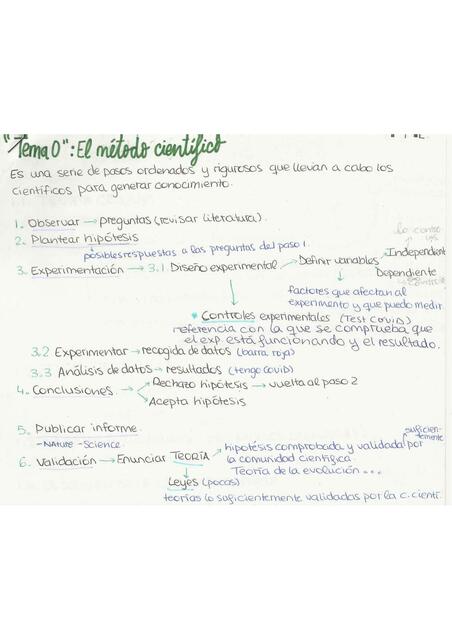 "Tema 0": El método científico
Es una serie de pasos ordenados y rigurosos que llevan a cabo los
científicos para generar conocimiento.
1. Observar → preguntas (revisar literatura).
2. Plantear hipótesis
posibles respuestas a las preguntas del paso 1.
lo contro
yo
3. Experimentación → 3.1 Diseño experimental → Definir variables → Independent
Dependiente
factores que afectan al
experimento y que puedo medir
* Controles experimentales (Test Covid)
referencia con la que se comprueba que
el exp. está funcionando y el resultado.
3.2 Experimentar → recogida de datos (barra roja)
3.3 Análisis de datos → resultados (tengo Covid)
4. Conclusiones → Rechazo hipótesis → vuelta al paso 2
→ Acepta hipótesis
5. Publicar informe.
- Nature - Science.
suficien-
temente
6. Validación → Enunciar TEORÍA → hipótesis comprobada y validada por
la comunidad científica.
Teoría de la evolución...
Leyes (pocas)
teorías lo suficientemente validadas por la c. cientí.